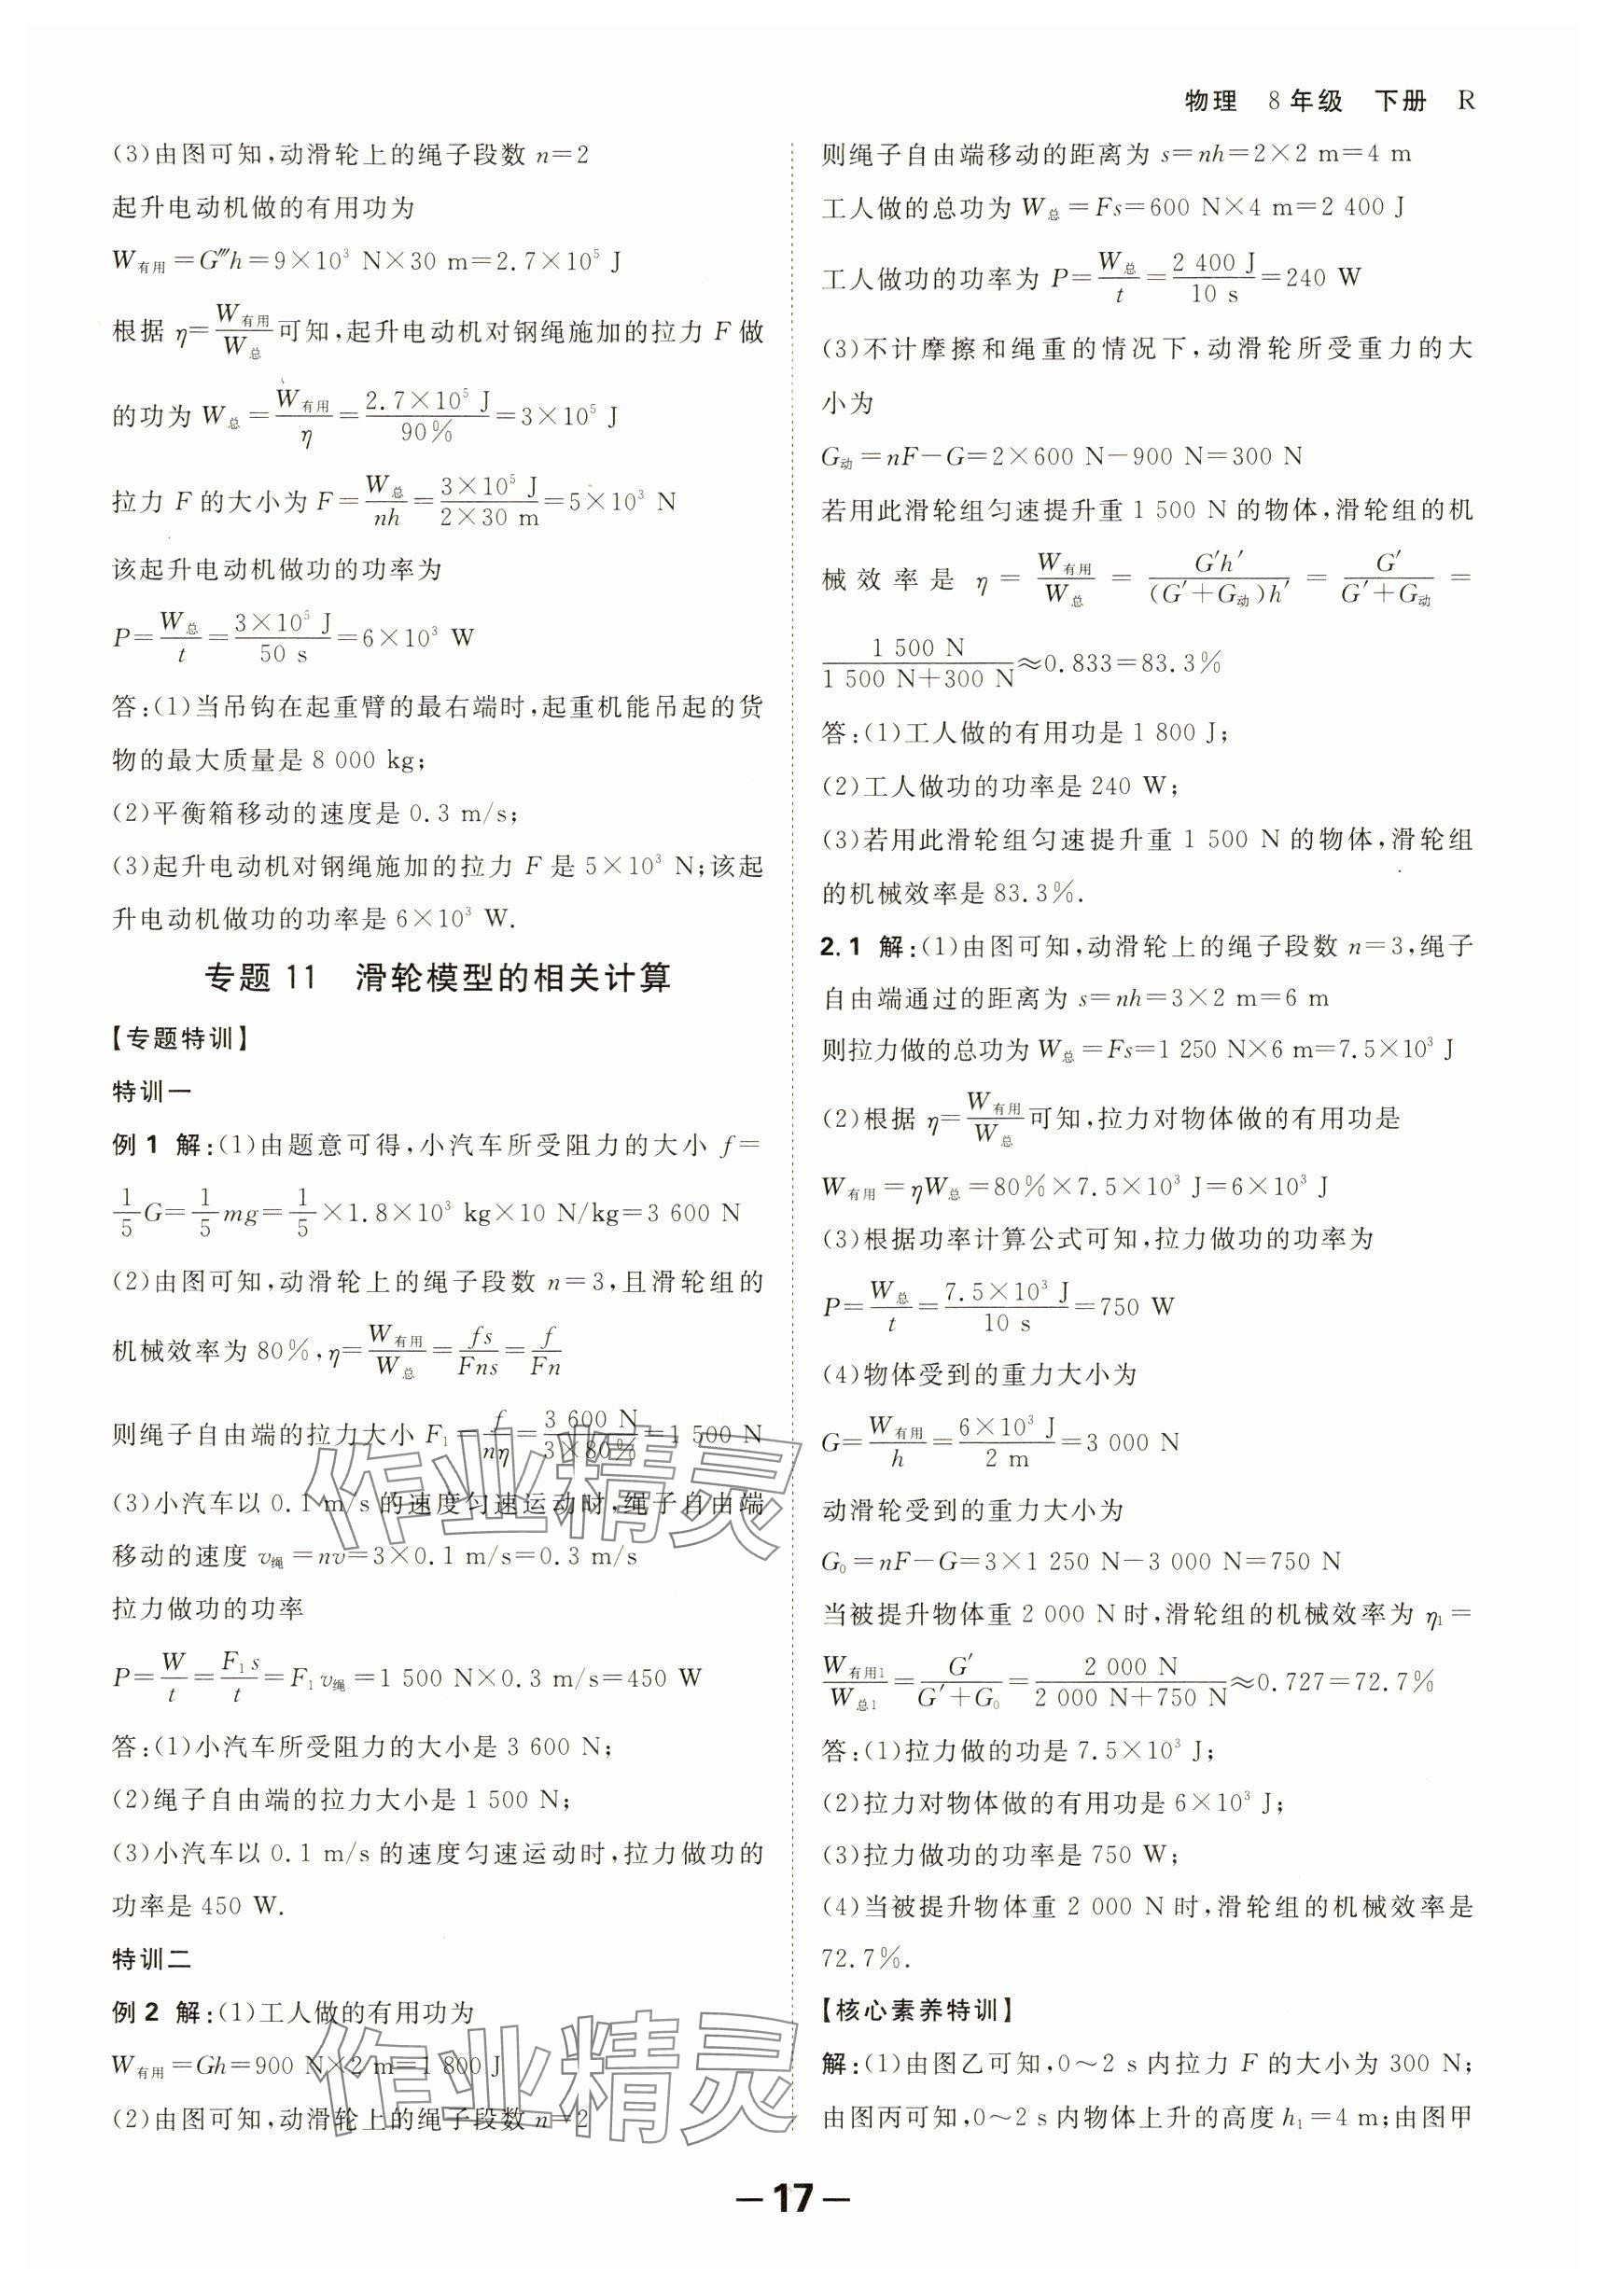 物理 8年级 下册 R
(3)由图可知,动滑轮上的绳子段数 n=2
起升电动机做的有用功为
W有用=G‴h=9×10³ N×30 m=2.7×10⁵ J
根据 η=W有用/W总 可知,起升电动机对钢绳施加的拉力 F 做
的功为 W总=W有用/η=2.7×10⁵ J/90%=3×10⁵ J
拉力 F 的大小为 F=W总/nh=3×10⁵ J/2×30 m=5×10³ N
该起升电动机做功的功率为
P=W总/t=3×10⁵ J/50 s=6×10³ W
答:(1)当吊钩在起重臂的最右端时,起重机能吊起的货
物的最大质量是 8 000 kg;
(2)平衡箱移动的速度是 0.3 m/s;
(3)起升电动机对钢绳施加的拉力 F 是 5×10³ N;该起
升电动机做功的功率是 6×10³ W.
专题 11 滑轮模型的相关计算
【专题特训】
特训一
例 1 解:(1)由题意可得,小汽车所受阻力的大小 f=
1/5 G=1/5 mg=1/5×1.8×10³ kg×10 N/kg=3 600 N
(2)由图可知,动滑轮上的绳子段数 n=3,且滑轮组的
机械效率为 80%,η=W有用/W总=fs/Fns=f/Fn
则绳子自由端的拉力大小 F₁=f/nη=3 600 N/3×80%=1 500 N
(3)小汽车以 0.1 m/s 的速度匀速运动时,绳子自由端
移动的速度 v绳=nv=3×0.1 m/s=0.3 m/s
拉力做功的功率
P=W/t=F₁s/t=F₁v绳=1 500 N×0.3 m/s=450 W
答:(1)小汽车所受阻力的大小是 3 600 N;
(2)绳子自由端的拉力大小是 1 500 N;
(3)小汽车以 0.1 m/s 的速度匀速运动时,拉力做功的
功率是 450 W.
特训二
例 2 解:(1)工人做的有用功为
W有用=Gh=900 N×2 m=1 800 J
(2)由图可知,动滑轮上的绳子段数 n=2
则绳子自由端移动的距离为 s=nh=2×2 m=4 m
工人做的总功为 W总=Fs=600 N×4 m=2 400 J
工人做功的功率为 P=W总/t=2 400 J/10 s=240 W
(3)不计摩擦和绳重的情况下,动滑轮所受重力的大
小为
G动=nF-G=2×600 N-900 N=300 N
若用此滑轮组匀速提升重 1 500 N 的物体,滑轮组的机
械效率是 η=W有用/W总=G′h′/(G′+G动)h′=G′/G′+G动=
1 500 N/1 500 N+300 N≈0.833=83.3%
答:(1)工人做的有用功是 1 800 J;
(2)工人做功的功率是 240 W;
(3)若用此滑轮组匀速提升重 1 500 N 的物体,滑轮组
的机械效率是 83.3%.
2.1 解:(1)由图可知,动滑轮上的绳子段数 n=3,绳子
自由端通过的距离为 s=nh=3×2 m=6 m
则拉力做的总功为 W总=Fs=1 250 N×6 m=7.5×10³ J
(2)根据 η=W有用/W总 可知,拉力对物体做的有用功是
W有用=ηW总=80%×7.5×10³ J=6×10³ J
(3)根据功率计算公式可知,拉力做功的功率为
P=W总/t=7.5×10³ J/10 s=750 W
(4)物体受到的重力大小为
G=W有用/h=6×10³ J/2 m=3 000 N
动滑轮受到的重力大小为
G₀=nF-G=3×1 250 N-3 000 N=750 N
当被提升物体重 2 000 N 时,滑轮组的机械效率为 η₁=
W有用1/W总1=G′/G′+G₀=2 000 N/2 000 N+750 N≈0.727=72.7%
答:(1)拉力做的功是 7.5×10³ J;
(2)拉力对物体做的有用功是 6×10³ J;
(3)拉力做功的功率是 750 W;
(4)当被提升物体重 2 000 N 时,滑轮组的机械效率是
72.7%.
【核心素养特训】
解:(1)由图乙可知,0～2 s 内拉力 F 的大小为 300 N;
由图丙可知,0～2 s 内物体上升的高度 h₁=4 m;由图甲
作业精灵
作业精灵
—17—